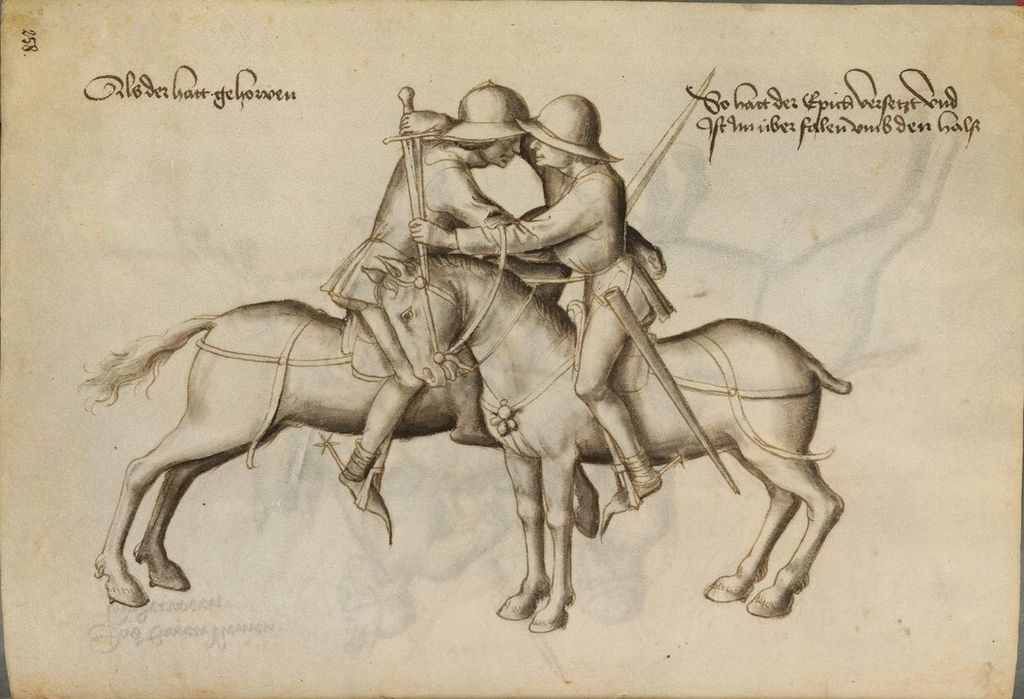 258.
Als der hatt gehowen
So hatt der Epich versetzt vnd
Ist Im über falen vmb den halß